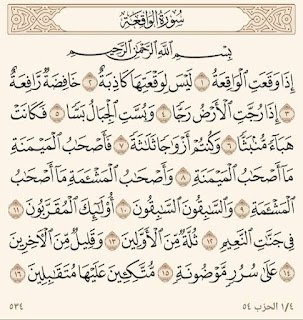 سُورَةُ الوَاقِعَةِ
بِسْمِ ٱللَّهِ ٱلرَّحْمَٰنِ ٱلرَّحِيمِ
إِذَا وَقَعَتِ ٱلْوَاقِعَةُ ١ لَيْسَ لِوَقْعَتِهَا كَاذِبَةٌ ٢ خَافِضَةٌ رَّافِعَةٌ
٣ إِذَا رُجَّتِ ٱلْأَرْضُ رَجًّا ٤ وَبُسَّتِ ٱلْجِبَالُ بَسًّا ٥ فَكَانَتْ
هَبَآءً مُّنۢبَثًّا ٦ وَكُنتُمْ أَزْوَٰجًا ثَلَٰثَةً ٧ فَأَصْحَٰبُ ٱلْمَيْمَنَةِ
مَآ أَصْحَٰبُ ٱلْمَيْمَنَةِ ٨ وَأَصْحَٰبُ ٱلْمَشْـَٔمَةِ مَآ أَصْحَٰبُ
ٱلْمَشْـَٔمَةِ ٩ وَٱلسَّٰبِقُونَ ٱلسَّٰبِقُونَ ١٠ أُو۟لَٰٓئِكَ ٱلْمُقَرَّبُونَ ١١
فِى جَنَّٰتِ ٱلنَّعِيمِ ١٢ ثُلَّةٌ مِّنَ ٱلْأَوَّلِينَ ١٣ وَقَلِيلٌ مِّنَ ٱلْـَٔاخِرِينَ
١٤ عَلَىٰ سُرُرٍ مَّوْضُونَةٍ ١٥ مُّتَّكِـِٔينَ عَلَيْهَا مُتَقَٰبِلِينَ ١٦
١/٤ الحزب ٥٤
٥٣٤